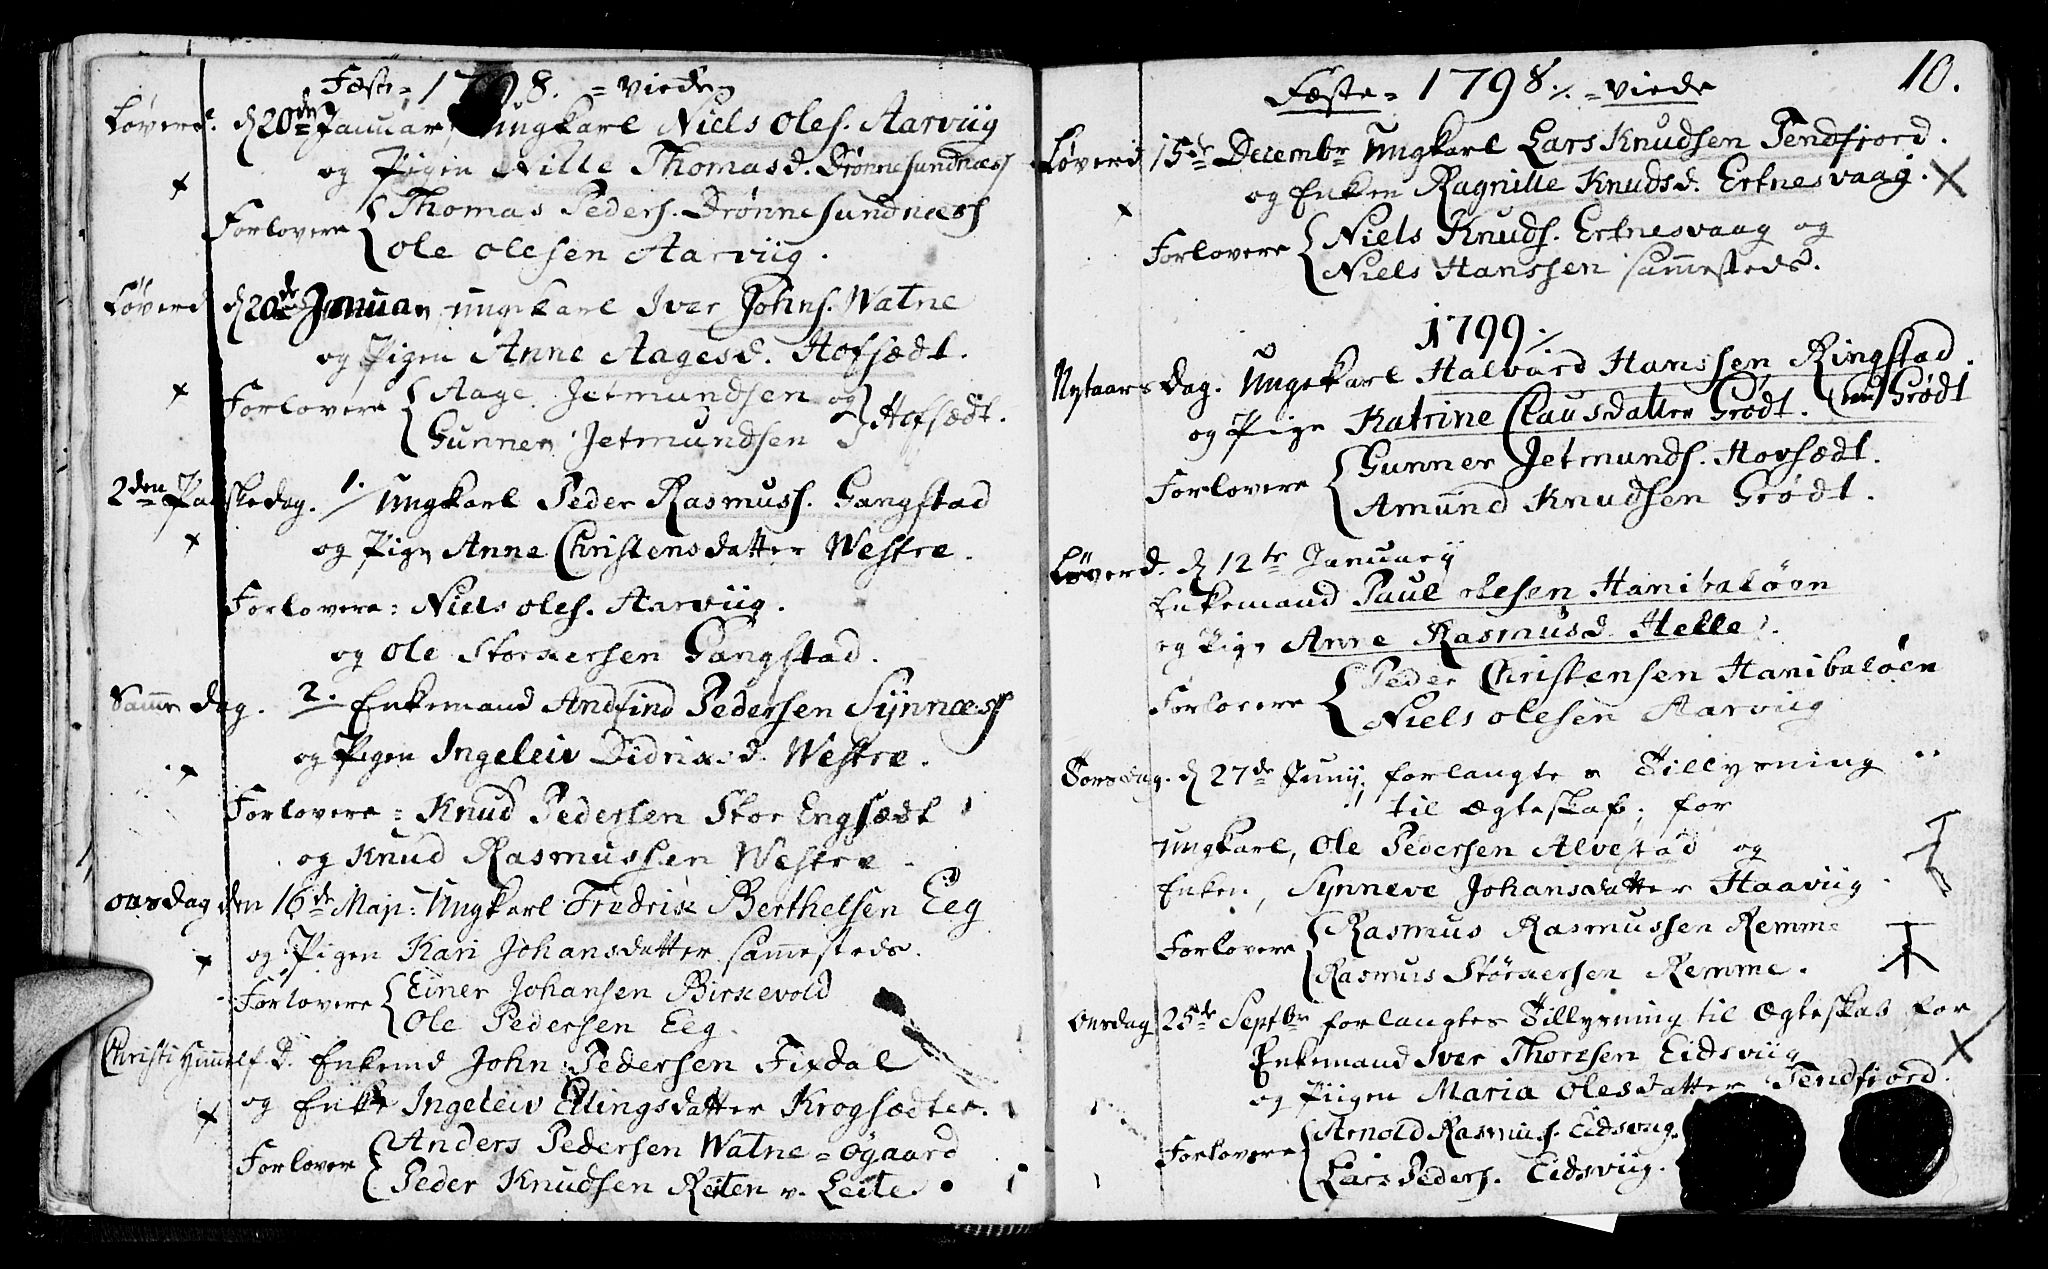 Fæste = 1798. = viede
Løverd. d 20de Januar, Ungkarl Niels Oles. Aarviig
og Pigen Nille Thomasd. Drønnesundnæss
Forlovere Thomas Peders. Drønnesundnæss
Ole Olesen Aarviig.
Løverd d 20de Januar, Ungekarl Iver Johns. Watne
og Pigen Anne Aagesd. Hofsædt.
Forlovere Aage Jetmundsen og
Gunner Jetmundsen Hofsædt.
2den Paaskedag. 1. Ungkarl Peder Rasmuss. Gangstad
og Pign Anne Christensdatter Westre.
Forlovere: Niels Oles. Aarviig.
og Ole Storxersen Gangstad.
Samme dag. 2. Enkemand Andfind Pedersen Synnæss
og Pigen Ingeleiv Didrixsd. Westre.
Forlovere = Knud Pedersen Stor Engsædt
og Knud Rasmussen Westre
Onsdag den 16de Maji: Ungkarl Fredrix Berthelsen Eeg
og Pigen Kari Johansdatter sammesteds.
Forlovere Einer Johansen Birxevold
Ole Pedersen Eeg.
Christi Himelf. D. Enkemd John Pedersen Fixdal
og Enke Ingeleiv Ellingsdatter Krogsædter.
Forlover Anders Pedersen Watne = Øgaard
Peder Knudsen Reiten v. Leite.
10.
Fæste = 1798 ./. = viede
Løverd 15de Decembr Ungkarl Lars Knudsen Tendfiord.
og Enken Ragnille Knudsd. Ertnesvaag.
Forlovere Niels Knuds. Ertnesvaag og
Niels Hanssen sammesteds.
1799 ./.
Nytaars Dag. Ungekarl Halvard Hanssen Ringstad.
og Pige Katrine Clausdatter Grødt. Grødt
Forlovere Gunner Jetmunds. Hovsædt.
Amund Knudsen Grødt.
Løverd. d 12te January
Enkemand Paul Olesen Hanibaløen
og Pige Anne Rasmusd. Helle.
Forlovere Peder Christensen Hanibaløen
Niels Olesen Aarviig
Torsdag. d 27de Junij, forlangte Tillysning
til Ægteskab, for
Ungkarl, Ole Pedersen Alvestad og
Enken, Synneve Johansdatter Haaviig.
Forlovere Rasmus Rasmussen Remme
Rasmus Størxersen Remme.
Onsdag 25de Septbr forlangtes Tillysning til Ægteskab for
Enkemand Iver Thoresen Eidsviig
og Piigen Maria Olesdatter Tendfiord.
Forlovere Arnold Rasmus. Eidsviig.
Lars Peders. Eidsviig.